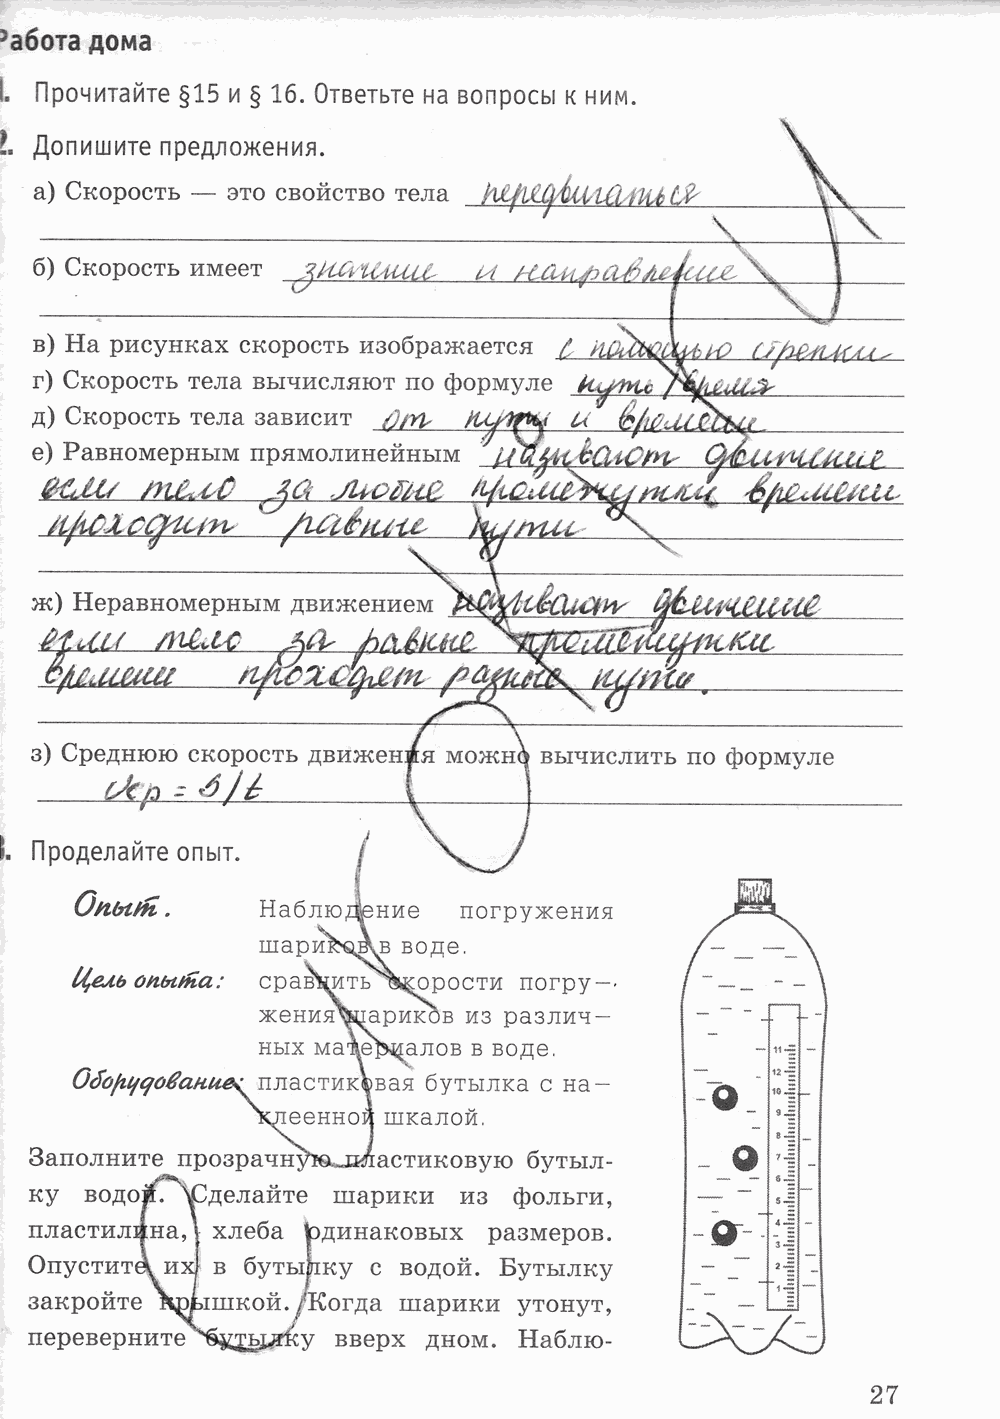 Работа дома
1. Прочитайте §15 и § 16. Ответьте на вопросы к ним.
2. Допишите предложения.
а) Скорость — это свойство тела передвигаться
б) Скорость имеет значение и направление
в) На рисунках скорость изображается с помощью стрелки
г) Скорость тела вычисляют по формуле путь / время
д) Скорость тела зависит от пути и времени
е) Равномерным прямолинейным называют движение
если тело за любые промежутки времени
проходит равные пути
ж) Неравномерным движением называют движение
если тело за равные промежутки
времени проходят разные пути.
з) Среднюю скорость движения можно вычислить по формуле
Vср = S/t
3. Проделайте опыт.
Опыт. Наблюдение погружения
шариков в воде.
Цель опыта: сравнить скорости погру-
жения шариков из различ-
ных материалов в воде.
Оборудование: пластиковая бутылка с на-
клеенной шкалой.
Заполните прозрачную пластиковую бутыл-
ку водой. Сделайте шарики из фольги,
пластилина, хлеба одинаковых размеров.
Опустите их в бутылку с водой. Бутылку
закройте крышкой. Когда шарики утонут,
переверните бутылку вверх дном. Наблю-
11
12
10
9
8
7
6
5
4
3
2
1
27